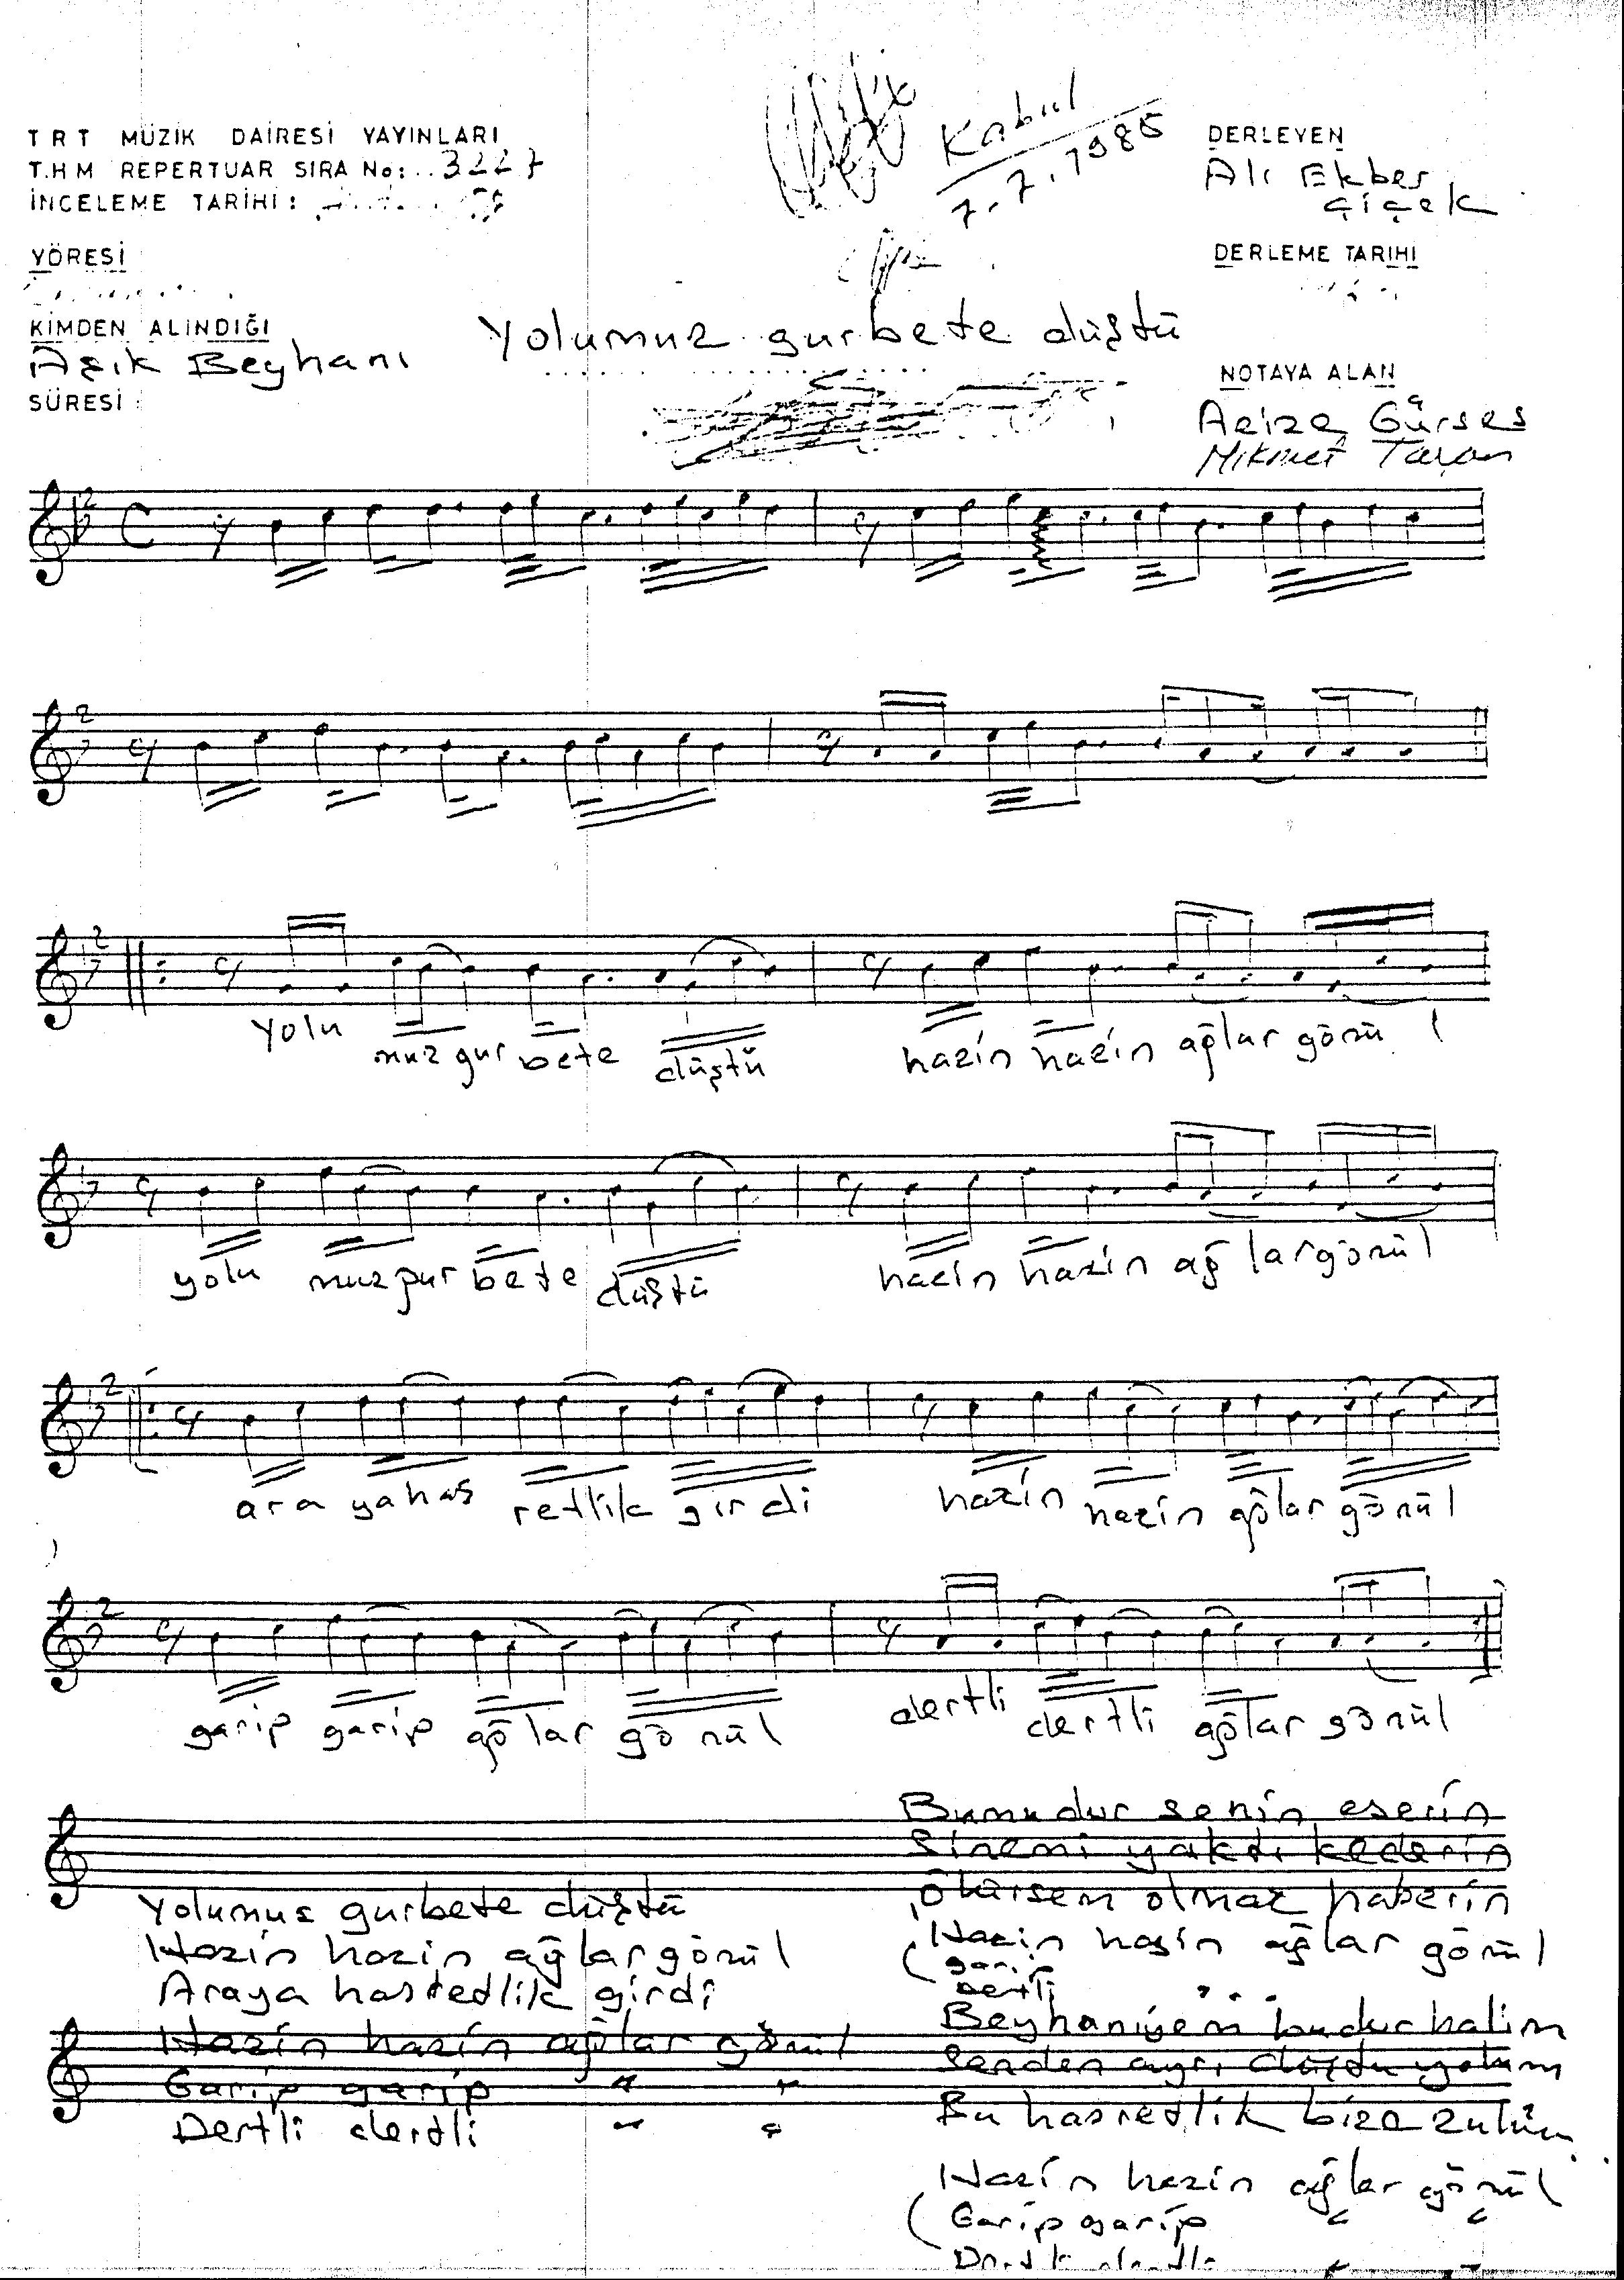 TRT MÜZİK DAİRESİ YAYINLARI
T.H M REPERTUAR SIRA No: 3227
İNCELEME TARİHİ:
YÖRESİ
KİMDEN ALINDIĞI
Aşık Beyhani
SÜRESİ:
Kabul
7.7.1986
DERLEYEN
Ali Ekber
Çiçek
DERLEME TARİHİ
Yolumuz gurbete düştü
NOTAYA ALAN
Azize Gürses
Hikmet Taşan
Yolu muz gur bete düştü hazin hazin ağlar gönü l
yolu muz gur bete düştü hazin hazin ağ largönül
ara yahas retlik gir di hazin hazin ağlar gönül
garip garip ağ lar gö nül dertli dertli ağlar gönül
Yolumuz gurbete düştü
Hazin hazin ağlar gönül
Araya hasretlik girdi
Hazin hazin ağlar gönül
Garip garip " "
Dertli dertli " "
Bumudur senin eserin
Sinemi yaktı kederin
Ölürsem olmaz haberin
Hazin hazin ağlar gönül
garip
Dertli
Beyhaniyem budur halim
Senden ayrı düştü yolum
Bu hasretlik bize zulüm
Hazin hazin ağlar gönül
Garip garip " "